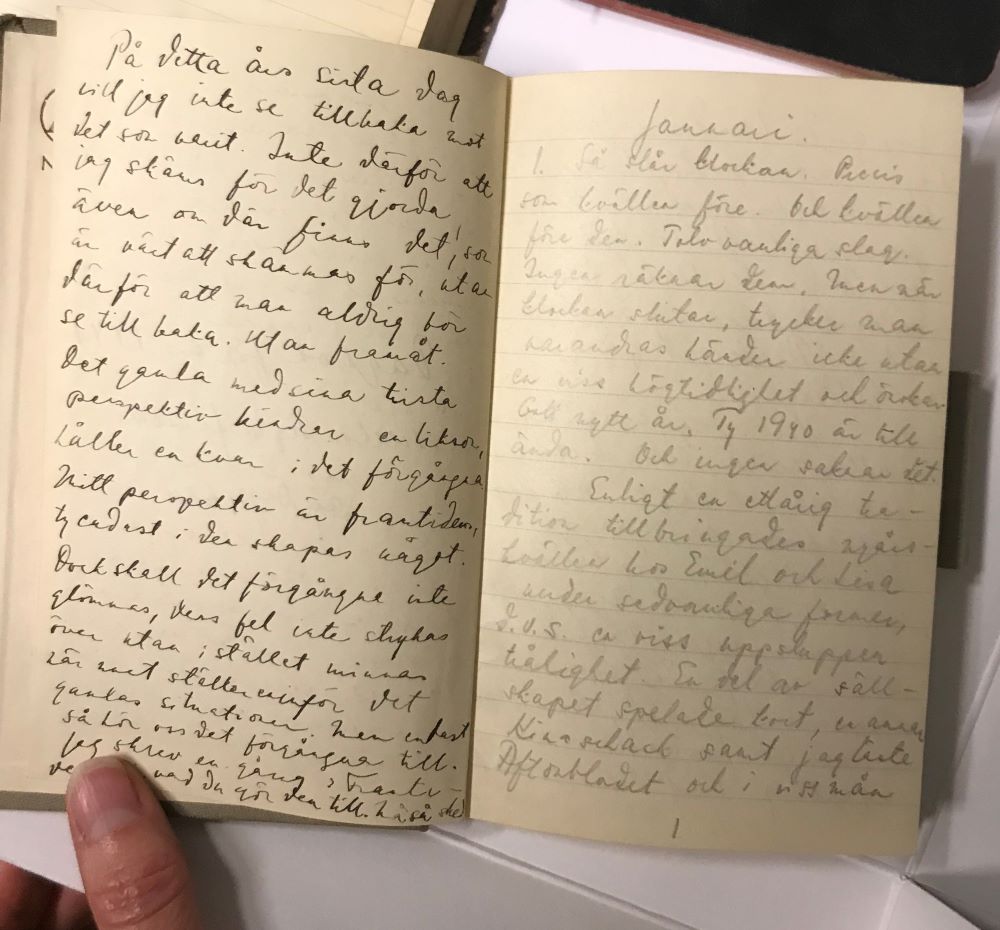 På detta års sista dag
vill jag inte se tillbaka mot
det som varit. Inte därför att
jag skäms för det gjorda,
även om där finns det, som
är värt att skämmas för, utan
därför att man aldrig bör
se tillbaka. Utan framåt.
Det gamla med sina trista
perspektiv hindrar en liksom,
håller en kvar i det förgångna.
Mitt perspektiv är framtidens,
ty endast i den skapas något.
Dock skall det förgångna inte
glömmas, dess fel inte strykas
över utan i stället minnas
när man ställes inför det
gamlas situationer. Men endast
så hör oss det förgångna till.
Jag skrev en gång: Framti-
vad du gör den till. Må så ske
Januari.
1. Så slår klockan. Precis
som kvällen före. Och kvällen
före den. Tolv vanliga slag.
Ingen räknar dem. Men när
klockan slutar, trycker man
varandras händer icke utan
en viss högtidlighet och önskar
Gott nytt år. Ty 1940 är till
ända. Och ingen saknar det.
Enligt en ettårig tra-
dition tillbringades nyårs-
kvällen hos Emil och Lisa
under sedvanliga former,
d.v.s. en viss uppsluppen
tålighet. En del av säll-
skapet spelade kort, en annan
Kinaschack samt jag läste
Aftonbladet och i viss mån
1